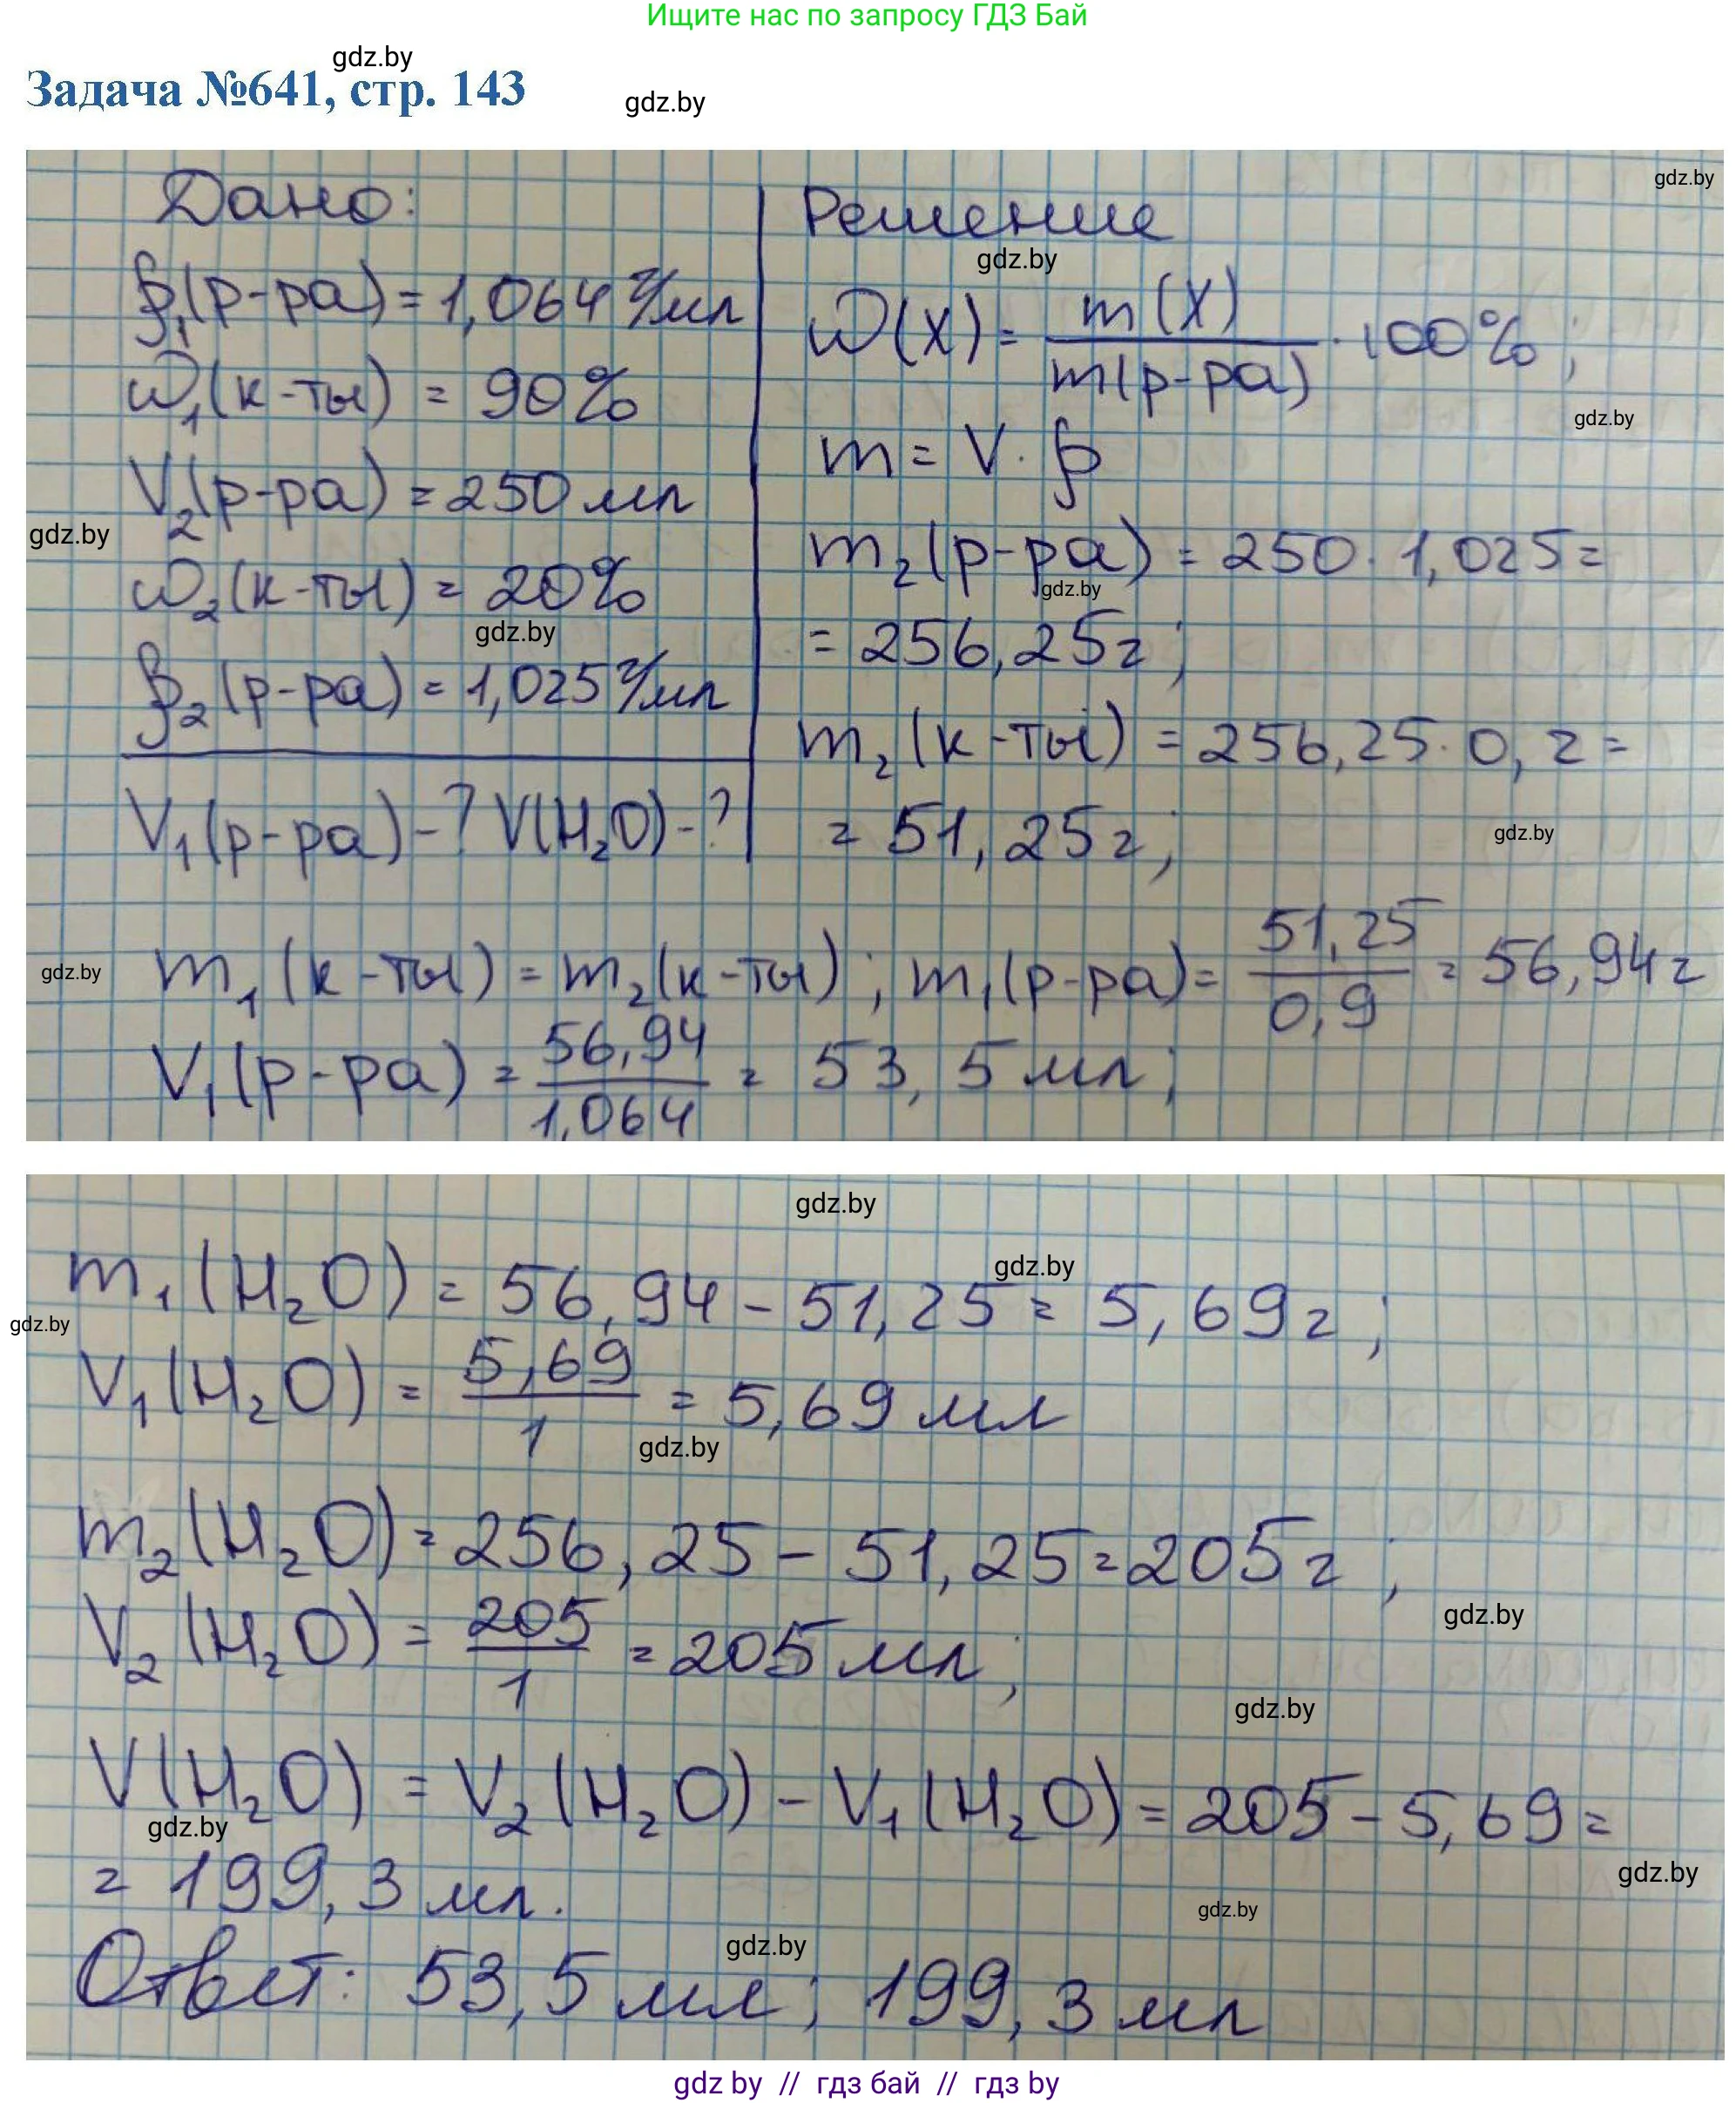 Ищите нас по запросу ГДЗ Бай
gdz.by
Задача №641, стр. 143
gdz.by
Дано:
ρ₁(р-ра) = 1,064 г/мл
ω₁(к-ты) = 90%
V₂(р-ра) = 250 мл
gdz.by
ω₂(к-ты) = 20%
gdz.by
ρ₂(р-ра) = 1,025 г/мл
V₁(р-ра) - ? V(H₂O) - ?
gdz.by
Решение
gdz.by
ω(X) = m(X) / m(р-ра) · 100%;
gdz.by
m = V · ρ
m₂(р-ра) = 250 · 1,025 =
gdz.by
= 256,25 г;
m₂(к-ты) = 256,25 · 0,2 =
= 51,25 г;
gdz.by
gdz.by
m₁(к-ты) = m₂(к-ты); m₁(р-ра) = 51,25 / 0,9 = 56,94 г
V₁(р-ра) = 56,94 / 1,064 = 53,5 мл;
gdz.by
gdz.by
m₁(H₂O) = 56,94 - 51,25 = 5,69 г;
gdz.by
V₁(H₂O) = 5,69 / 1 = 5,69 мл
gdz.by
m₂(H₂O) = 256,25 - 51,25 = 205 г;
gdz.by
V₂(H₂O) = 205 / 1 = 205 мл;
gdz.by
V(H₂O) = V₂(H₂O) - V₁(H₂O) = 205 - 5,69 =
gdz.by
= 199,3 мл.
gdz.by
gdz.by
gdz.by
Ответ: 53,5 мл; 199,3 мл
gdz by // гдз бай // гдз by